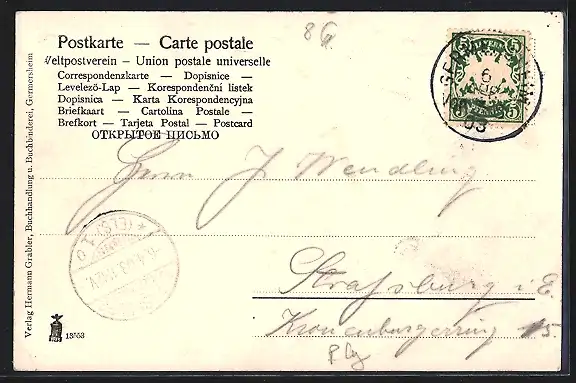 8 G
Postkarte — Carte postale
Weltpostverein — Union postale universelle
Correspondenzkarte — Dopisnice —
Levelező-Lap — Korespondenční lístek
Dopisnica — Karta Korespondencyjna
Briefkaart — Cartolina Postale —
Brefkort — Tarjeta Postal — Postcard
ОТКРЫТОЕ ПИСЬМО
5 5
6
03
Herrn J Wendling
Strassburg i. E.
Kronenburgerring 15.
Verlag Hermann Grabler, Buchhandlung u. Buchbinderei, Germersheim